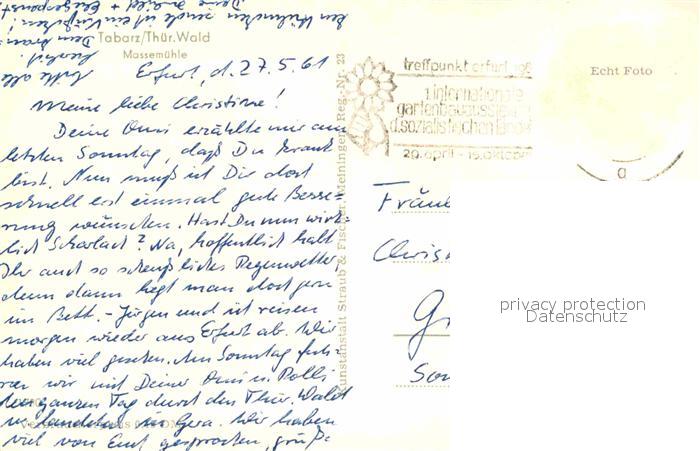 Tabarz/Thür. Wald
Massemühle
Erfurt, d. 27.5.61
Meine liebe Christine!
Deine Omi erzählte mir am
letzten Sonntag, daß Du krank
bist. Nun muß ich Dir doch
schnell erst einmal gute Besse-
rung wünschen. Hast Du nun wirk-
lich Scharlach? Na, hoffentlich habt
Ihr auch so scheußliches Regenwetter,
denn dann liegt man doch gern
im Bett. - Jürgen und ich reisen
morgen wieder aus Erfurt ab. Wir
haben viel gesehen. Am Sonntag fuh-
ren wir mit Deiner Omi u.
den ganzen Tag durch den Thür. Wald
u. in Gera. Wir haben
viel von Euch gesprochen, grüß-
Kunstanstalt Straub & Fischer, Meiningen Reg.-Nr. 23
treffpunkt erfurt 196
1. internationale
gartenbauausstellung
d. sozialistischen länder
29. april - 15. oktober
Echt Foto
a
Fräul
Chris
G
privacy protection
Datenschutz